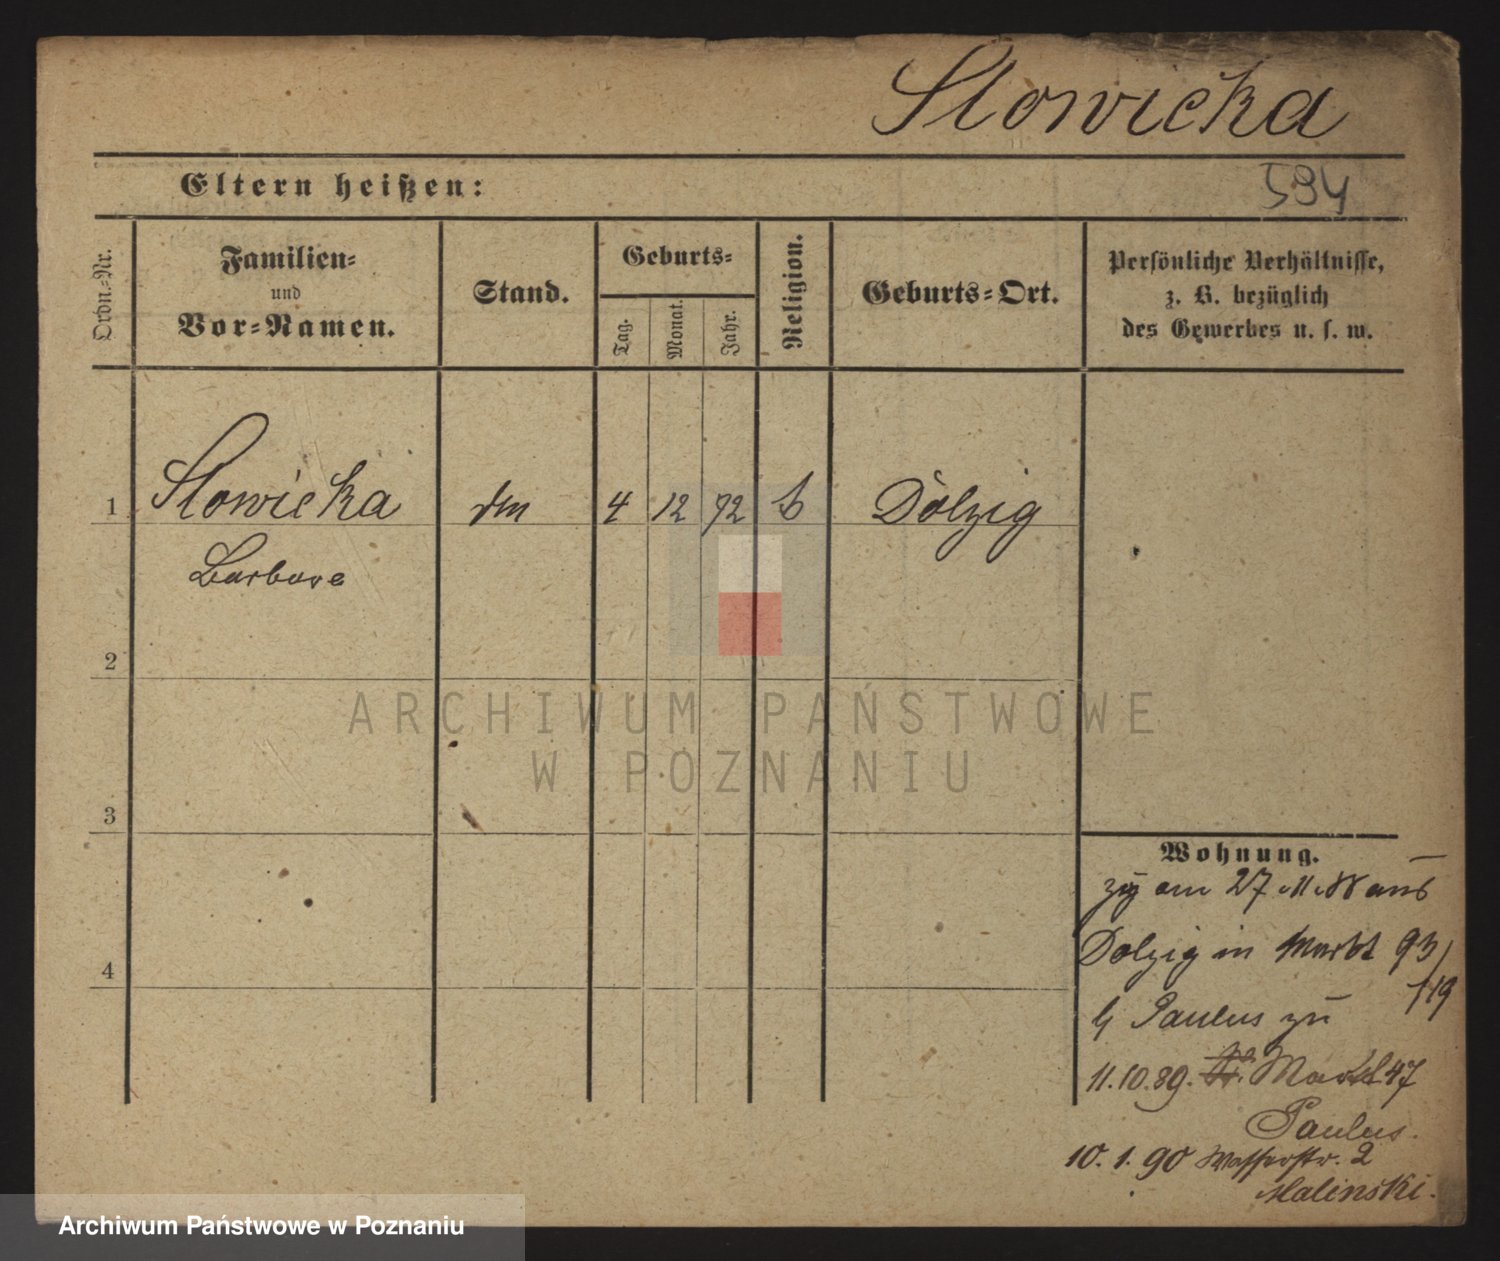 Slowicka
Eltern heißen:
594
Ordn.-Nr.
Familien-
und
Vor-Namen.
Stand.
Geburts-
Tag.
Monat.
Jahr.
Religion.
Geburts-Ort.
Persönliche Verhältnisse,
z. B. bezüglich
des Gewerbes u. s. w.
1 Slowicka 4 12 72 Dolzig
Barbara
2
ARCHIWUM PAŃSTWOWE
W POZNANIU
3
Wohnung.
zg am 27 aus
Dolzig in Markt 93/
119
Paulus zu
4
11.10.89. Markt 47
Paulus.
10.1.90 Wasserstr. 2
Malinski.
Archiwum Państwowe w Poznaniu